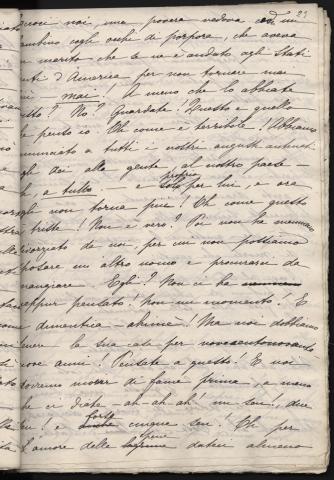 23
noi, una povera vedova ed un
bambino cogli occhi di porpora, che aveva
un marito che se ne è andato agli Stati
Uniti d'America per non tornare mai
mai! A meno che lo abbiate
visto? No? Guardate! Questo è quello
penso io. Oh come è terribile! Abbiamo
rinunciato a tutti i nostri augusti antenati
agli dei alla gente, al nostro paese –
a tutto – e proprio solo per lui, e ora
egli non torna più! Oh come questo
è triste! Non è vero? Poi non ha nemmeno
divorziato da noi, per cui non possiamo
sposare un altro uomo e procurarci da
mangiare Egli? Non ci ha
neppur pensato! non un momento! E
dimentica – ahimè! Ma noi dobbiamo
tenere la sua casa per novecentonovanta
nove anni! Pensate a questo! E noi
dovremo morir di fame prima, a meno
che ci diate – ah – ah – ah! un sen!, due
sen! e forse cinque sen! Oh per
l'amore delle spene datici almeno